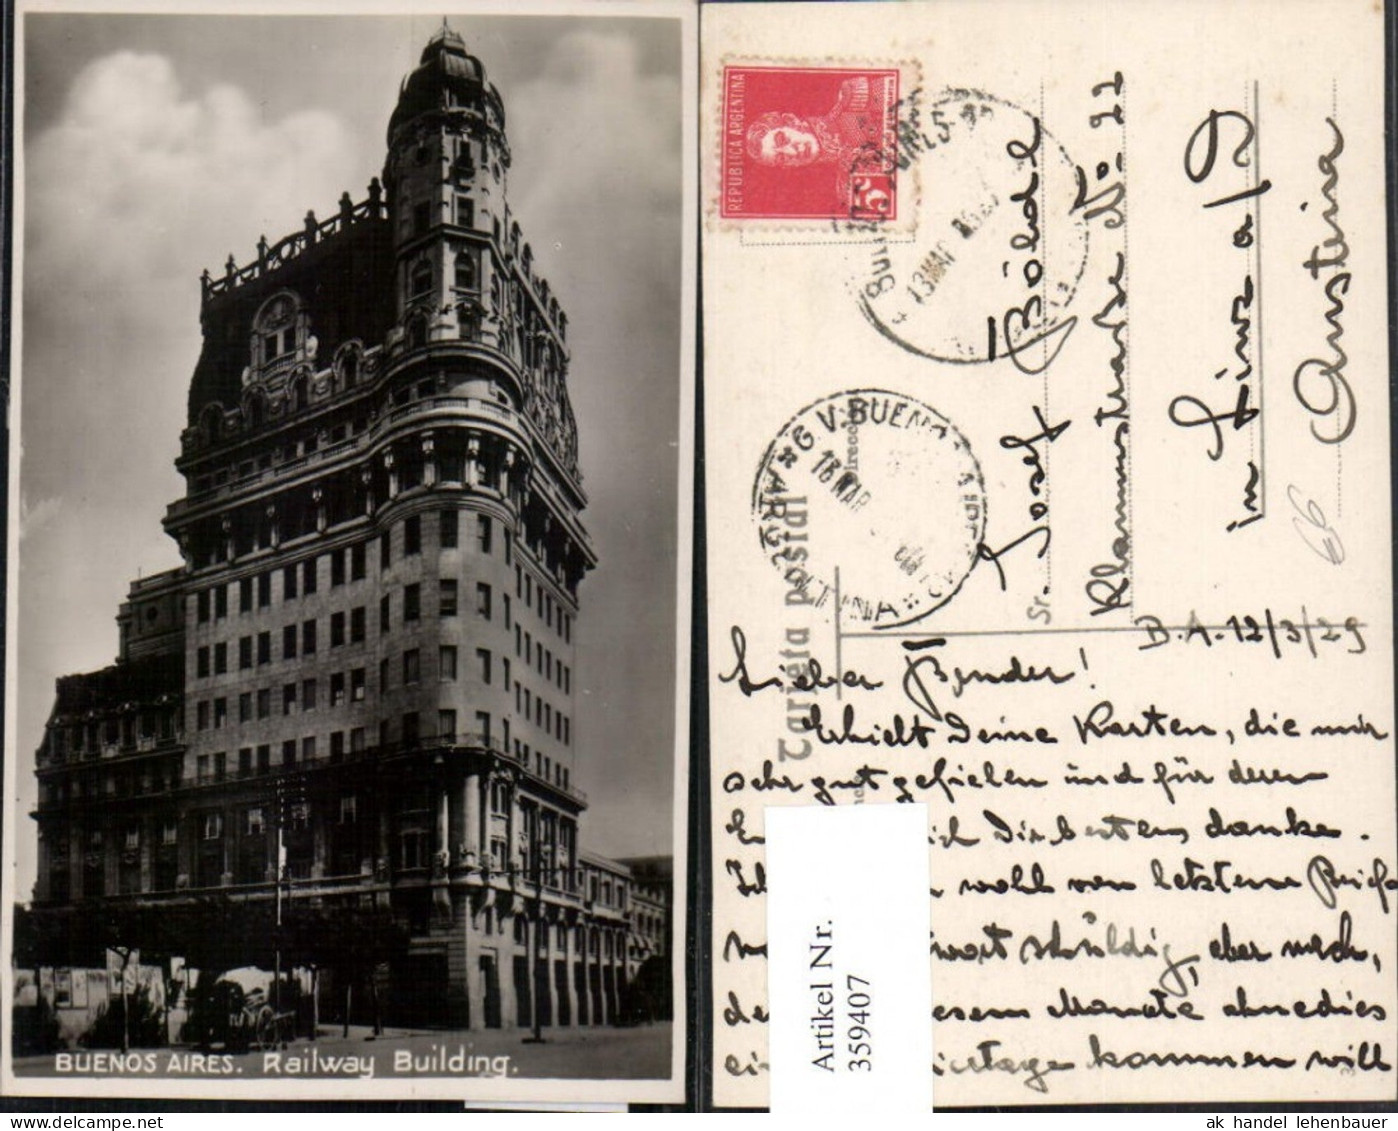 BUENOS AIRES. Railway Building.
REPUBLICA ARGENTINA
5
BUENOS AIRES
13 MAR
G.V. BUENOS AIRES
13 MAR
ARGENTINA
Tarjeta postal
Sr. Josef
Nº 22
in Linz a/D
Austria
66
B.A. 12/3/29
Lieber Bruder!
Erhielt Deine Karten, die mir
sehr gut gefielen und für deren
ich Dir bestens danke.
wohl von letztem Briefe
schuldig, aber nach,
Monate ohnedies
kommen will
Artikel Nr.
359407
ak handel lehenbauer